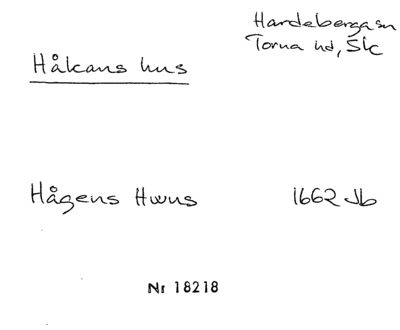 Hardeberga sn
Torna hd, Sk
Håkans hus
Hågens Hwus 1662 Jb
Nr 18218